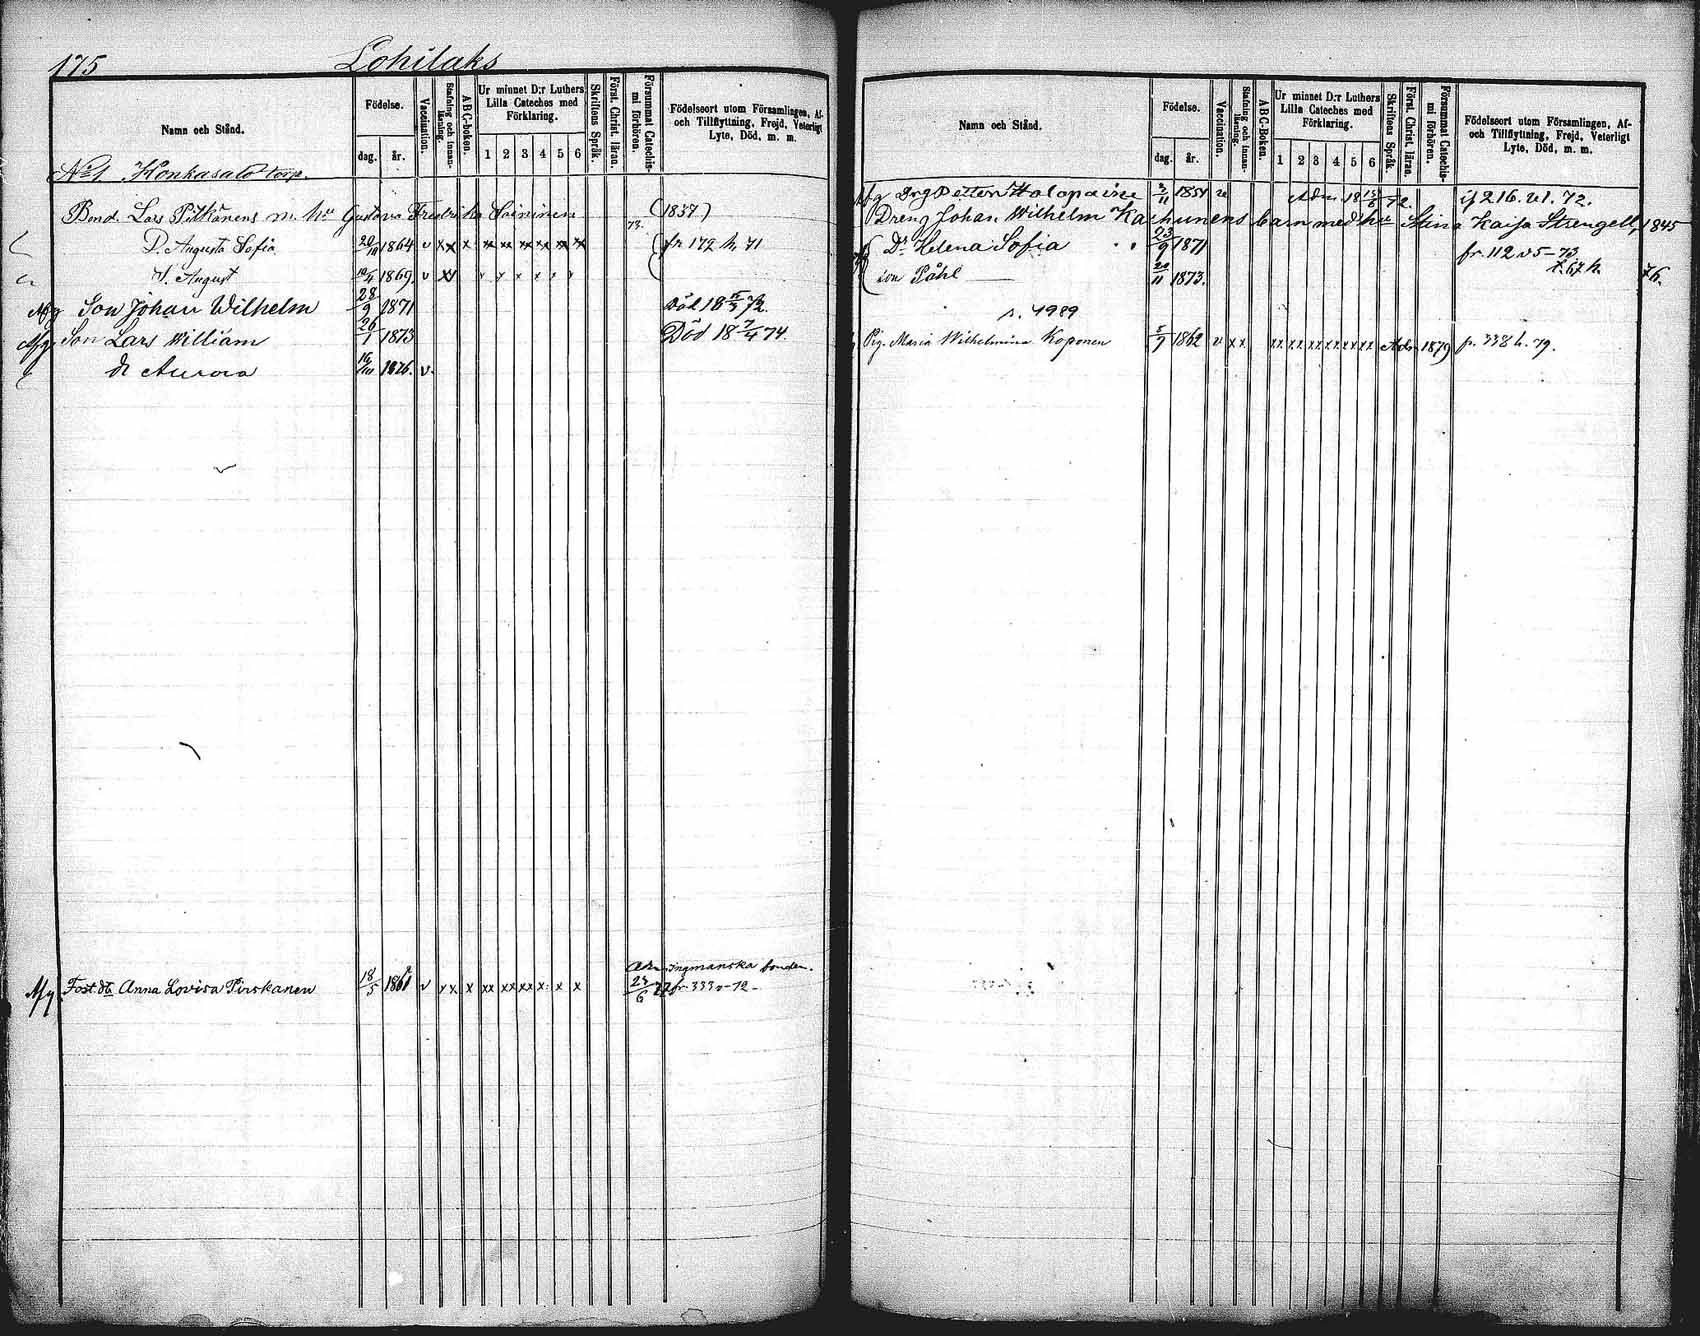 175 Lohilaks
Namn och Stånd.
Födelse.
dag. år.
Vaccination.
Stafning och innan-läsning.
ABC-boken.
Ur minnet D:r Luthers
Lilla Cateches med
Förklaring.
1 2 3 4 5 6
Skriftens Språk.
Först. Christ. läran.
Försummat Catechis-
mi förhören.
Födelseort utom Församlingen, Af-
och Tillflyttning, Frejd, Veterligt
Lyte, Död, m. m.
No 1 Konkasalo torp.
Bond. Lars Pitkänens m. hu Gustava Fredrika Soininen (1837)
73.
D. Augusta Sofia 1864 v xx x xx xx xx xx xx xx fr 172 h. 71
S. August 1869. v xx x x x x x x
Afg Son Johan Wilhelm 28/9 1871 Död 18 72.
Afg Son Lars William 26/1 1873 Död 18 7/4 74.
dr Aurora 1876. v.
Adm. ingmanska bonden.
Afg Fost.dtr Anna Lovisa Pirskanen 18/5 1861 v xx x xx xx xx x x x 23/6 77 fr. 333 v-72-
Namn och Stånd.
Födelse.
dag. år.
Vaccination.
Stafning och innan-läsning.
ABC-Boken.
Ur minnet D:r Luthers
Lilla Cateches med
Förklaring.
1 2 3 4 5 6
Skriftens Språk.
Först. Christ. läran.
Försummat Catechis-
mi förhören.
Födelseort utom Församlingen, Af-
och Tillflyttning, Frejd, Veterligt
Lyte, Död, m. m.
Afg Drg Petter Holopaine 1851 v Adm. 18 72. if 216. v1. 72.
Dreng Johan Wilhelm Karhunens barn med hu Stina Kaisa Strengell, 1845
Dr Helena Sofia 23/9 1871 fr. 112 v5-73
son Påhl 20/11 1873. t. 67 h 76.
s. 1989
Pig. Maria Wilhelmina Koponen 5/7 1862 v xx xx xx xx xx xx xx Adm 1879 p. 338 h. 79.